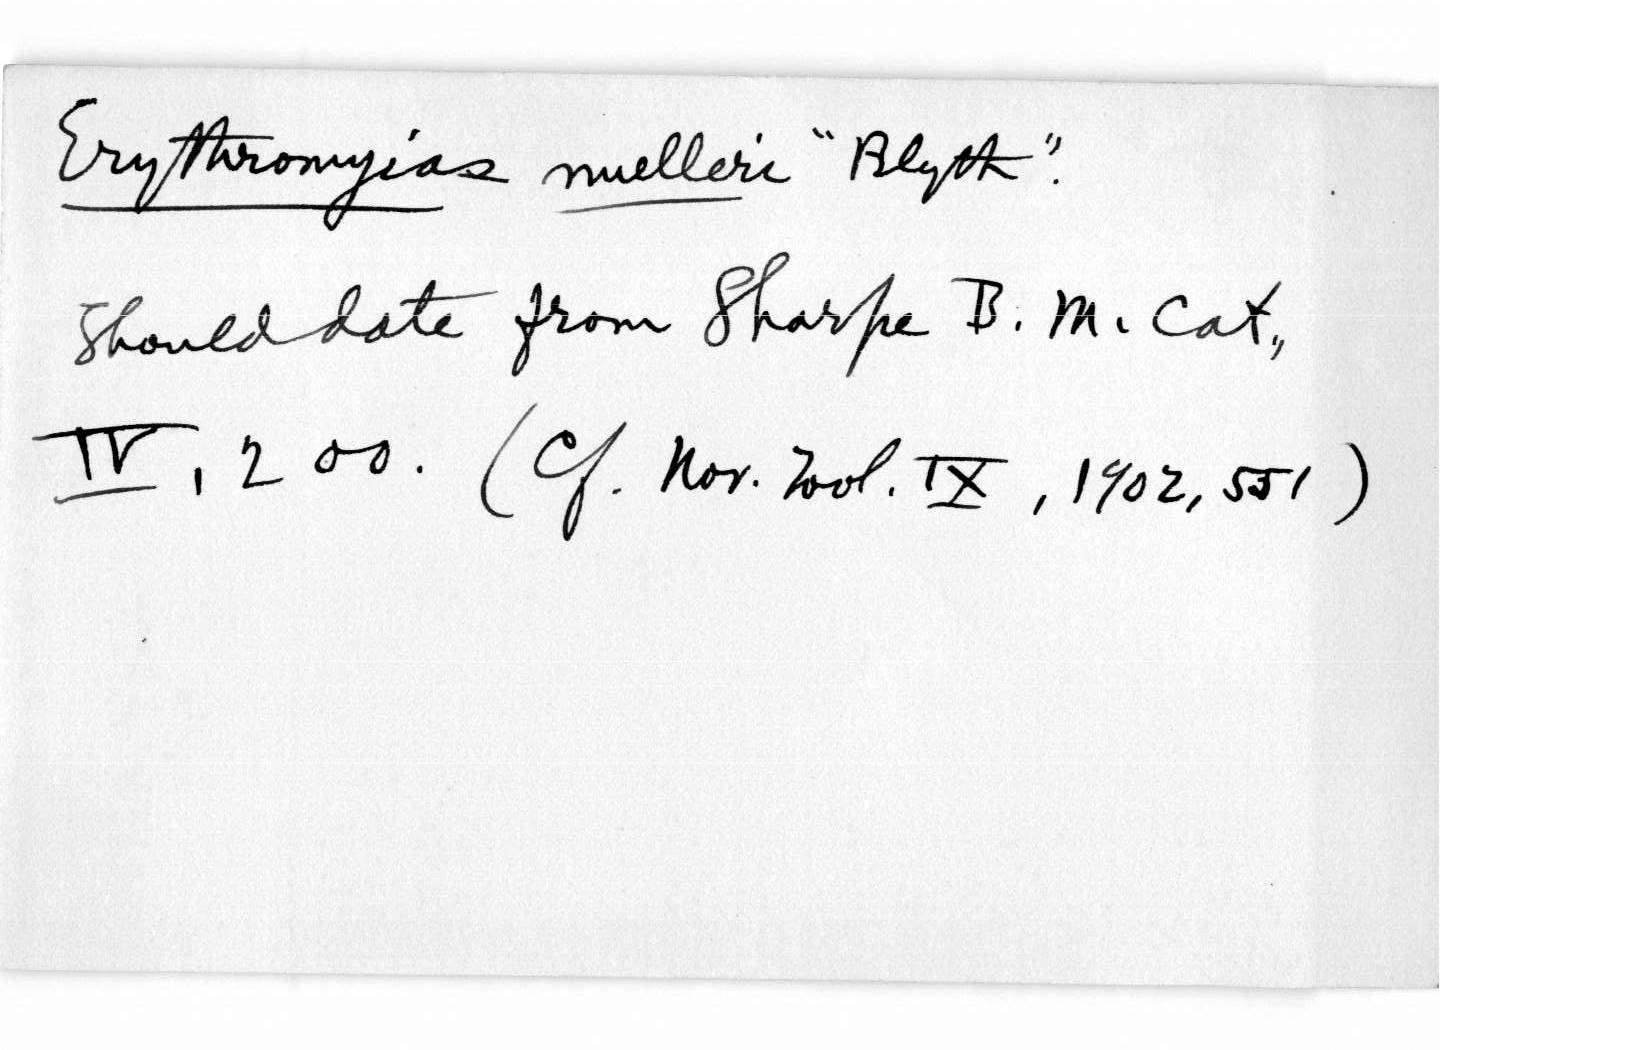 Erythromyias muelleri "Blyth".
Should date from Sharpe B. M. Cat.,
IV, 200. (Cf. Nov. Zool. IX, 1902, 551)